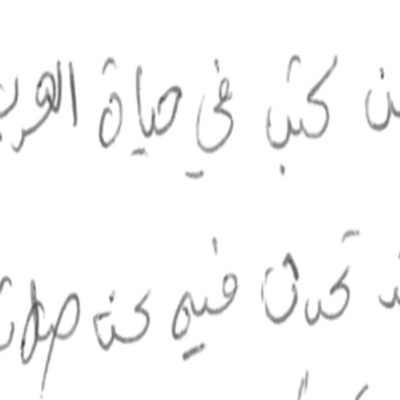 كتب في حياة العرب
تحدث فيه عن صلات